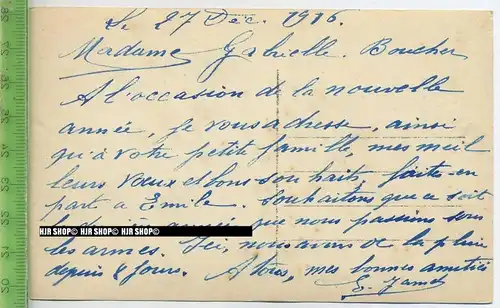 Le 27 Déc. 1916.
Madame Gabrielle Boucher
A l'occasion de la nouvelle
année, je vous adresse, ainsi
qu'à votre petite famille, mes meil
leurs vœux et bons souhaits, faites-en
part a Emile. Souhaitons que ce soit
HJR SHOP© HJR SHOP© HJR SHOP© que nous passions sous
les armes. Ici, nous avons de la pluie
depuis 8 jours. A tous, mes bonnes amitiés
20 21 22 23 24 25 26 27 28